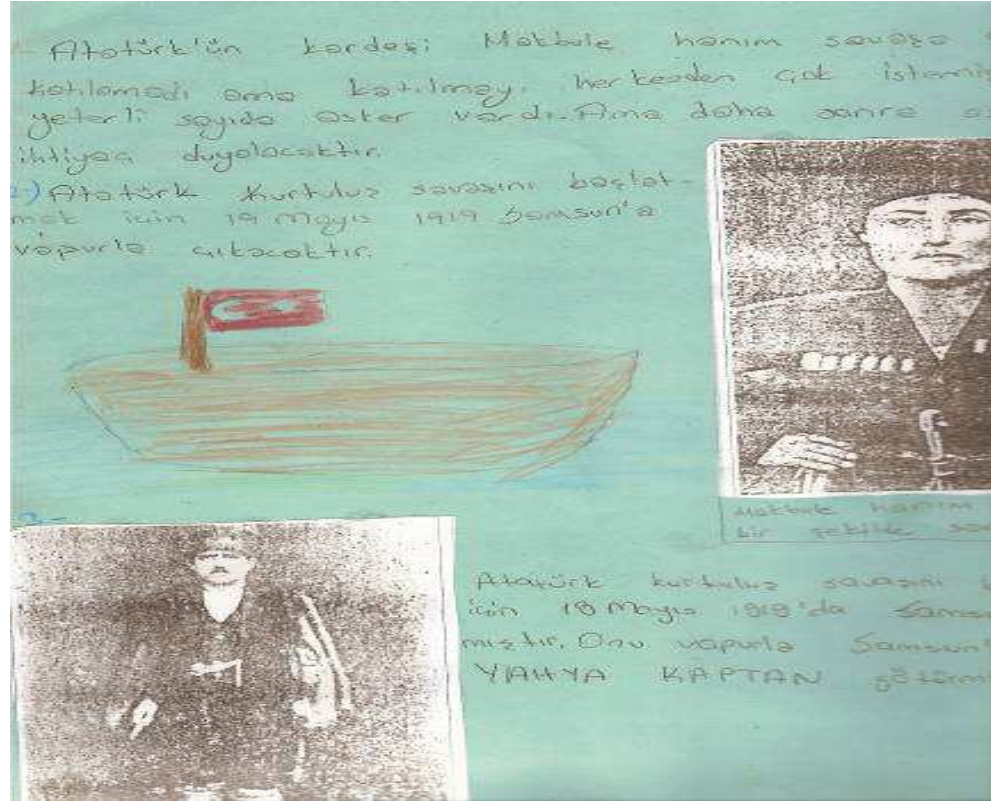 Atatürk'ün kardeşi Makbule hanım savaşa
katılamadı ama katılmayı herkesden çok istemiş
yeterli sayıda asker vardı. Ama daha sonra
ihtiyaç duyolacaktır.
2-) Atatürk Kurtuluş savaşını başlat-
mak için 19 Mayıs 1919 Samsun'a
vapurla çıkacaktır.
Makbule Hanım
bir şekilde
Atatürk kurtuluş savaşını
için 19 Mayıs 1919'da Samsu
mıştır. Onu vapurla Samsun'
YAHYA KAPTAN götürm